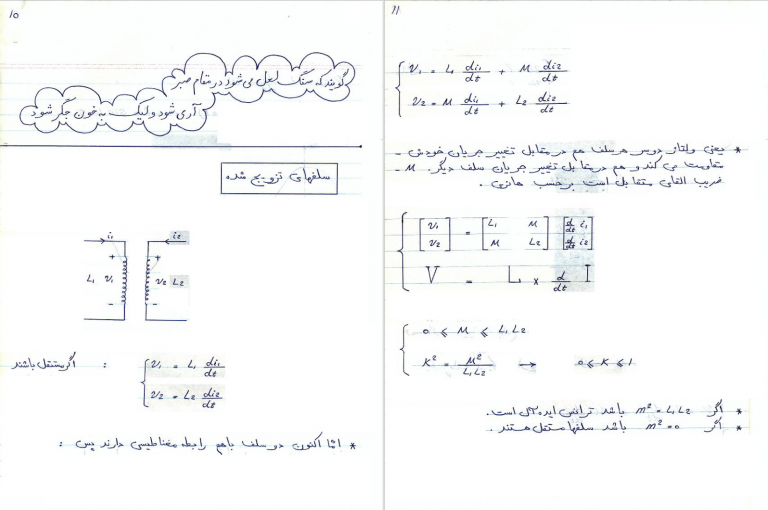 ۱۰
گویند که سنگ لعل می‌شود در مقام صبر
آری شود ولیک به خون جگر شود
سلفهای تزویج شده
i₁ i₂
+ +
L₁ V₁ V₂ L₂
- -
اگر مستقل باشند :
V₁ = L₁ di₁/dt
V₂ = L₂ di₂/dt
* امّا اکنون دو سلف باهم رابطه مغناطیسی دارند پس :
۱۱
V₁ = L₁ di₁/dt + M di₂/dt
V₂ = M di₁/dt + L₂ di₂/dt
* یعنی ولتاژ دوسر هر سلف هم در مقابل تغییر جریان خودش -
مقاومت می کند و هم در مقابل تغییر جریان سلف دیگر. M -
ضریب القای متقابل است برحسب هانری .
[V₁ V₂] = [L₁ M M L₂] [d/dt i₁ d/dt i₂]
V = L × d/dt I
0 ⩽ M ⩽ L₁L₂
K² = M²/L₁L₂ → 0 ⩽ K ⩽ 1
* اگر m² = L₁L₂ باشد ترانس ایده آل است.
* اگر m² = 0 باشد سلفها مستقل هستند .